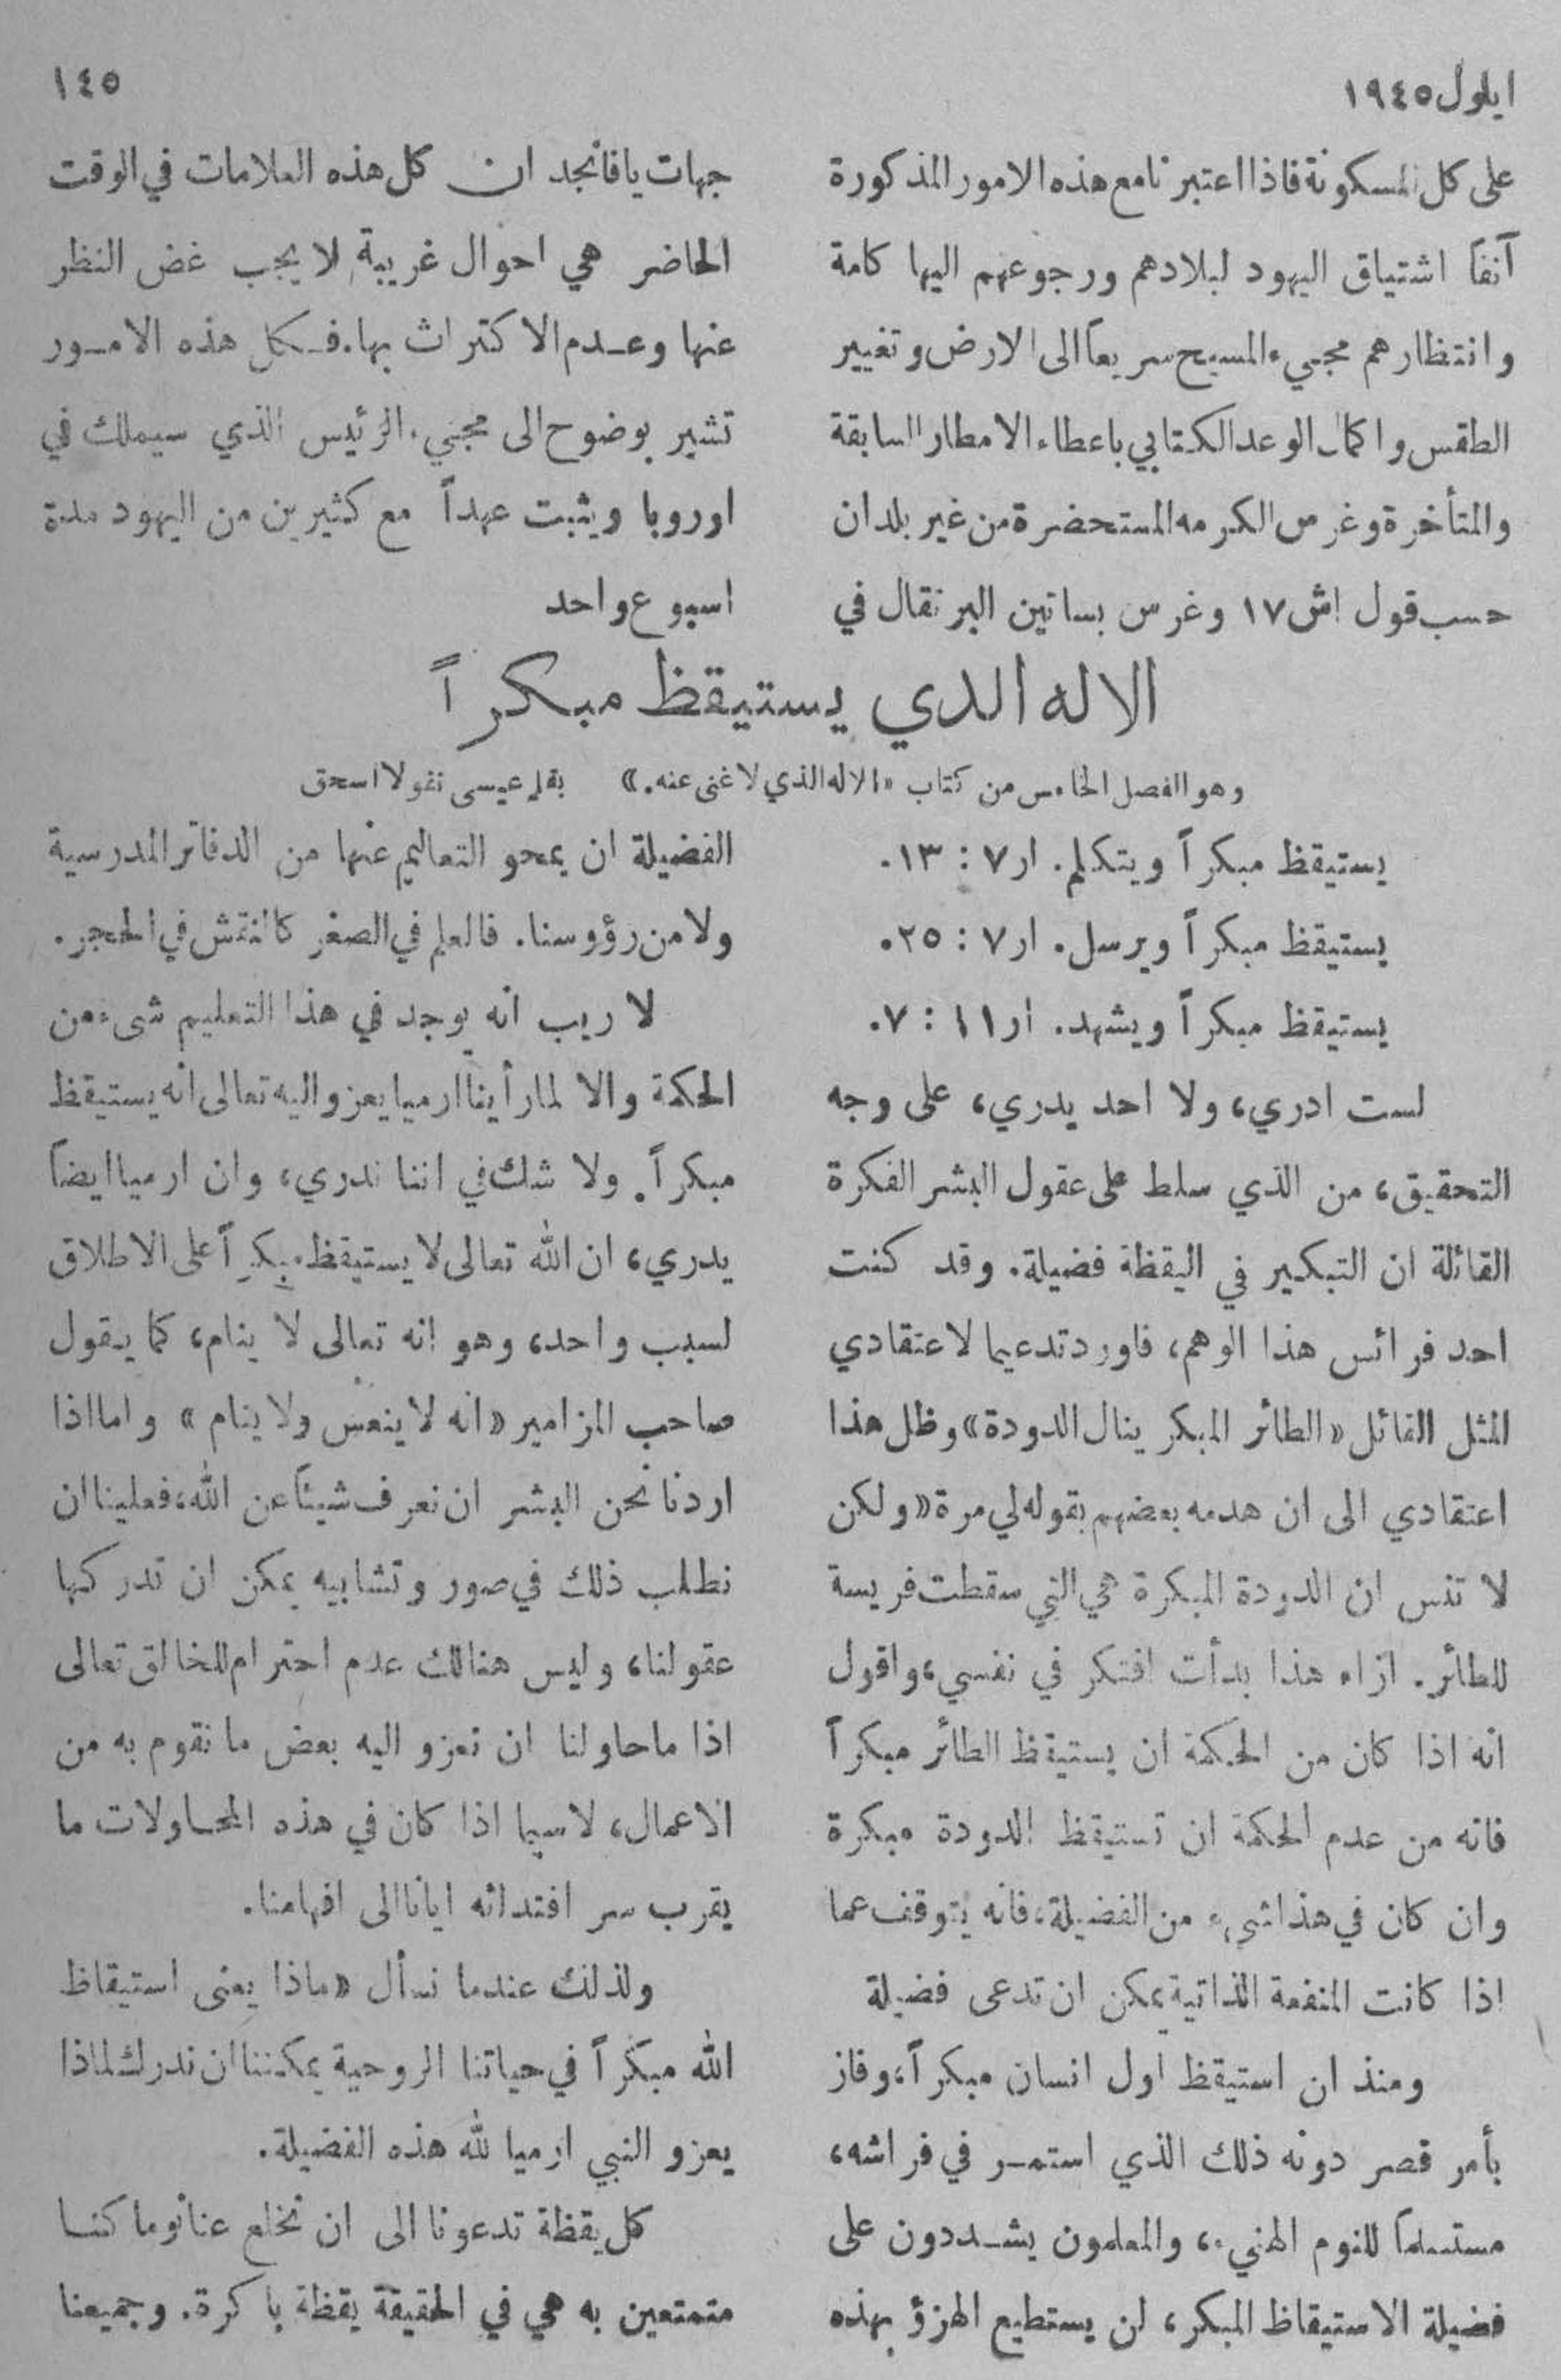 ايلول ١٩٤٥
١٤٥
على كل المسكونة فاذا اعتبرنا مع هذه الامور المذكورة
آنفاً اشتياق اليهود لبلادهم ورجوعهم اليها كامة
وانتظارهم مجيء المسيح سريعاً الى الارض وتغيير
الطقس واكمال الوعد الكتابي باعطاء الامطار السابقة
والمتأخرة وغرس الكرمه المستحضرة من غير بلدان
حسب قول اش ١٧ وغرس بساتين البرتقال في
جهات يافا نجد ان كل هذه العلامات في الوقت
الحاضر هي احوال غريبة لا يجب غض النظر
عنها وعدم الاكتراث بها. فكل هذه الامور
تشير بوضوح الى مجيء الرئيس الذي سيملك في
اوروبا ويثبت عهداً مع كثيرين من اليهود مدة
اسبوع واحد
الاله الذي يستيقظ مبكراً
وهو الفصل الخامس من كتاب «الاله الذي لا غنى عنه.» بقلم عيسى نقولا اسحق
يستيقظ مبكراً ويتكلم. ار ٧ : ١٣.
يستيقظ مبكراً ويرسل. ار ٧ : ٢٥.
يستيقظ مبكراً ويشهد. ار ١١ : ٧.
لست ادري، ولا احد يدري، على وجه
التحقيق، من الذي سلط على عقول البشر الفكرة
القائلة ان التبكير في اليقظة فضيلة. وقد كنت
احد فرائس هذا الوهم، فاورد تدعيما لاعتقادي
المثل القائل «الطائر المبكر ينال الدودة» وظل هذا
اعتقادي الى ان هدمه بعضهم بقوله لي مرة «ولكن
لا تنس ان الدودة المبكرة هي التي سقطت فريسة
للطائر. ازاء هذا بدأت افتكر في نفسي، واقول
انه اذا كان من الحكمة ان يستيقظ الطائر مبكراً
فانه من عدم الحكمة ان تستيقظ الدودة مبكرة
وان كان في هذا شيء من الفضيلة، فانه يتوقف عما
اذا كانت المنفعة الذاتية يمكن ان تدعى فضيلة
ومنذ ان استيقظ اول انسان مبكراً، وفاز
بأمر قصر دونه ذلك الذي استمر في فراشه،
مستسلماً للنوم الهنيء، والمعلمون يشددون على
فضيلة الاستيقاظ المبكر، لن يستطيع الهزؤ بهذه
الفضيلة ان يمحو التعاليم عنها من الدفاتر المدرسية
ولا من رؤوسنا. فالعلم في الصغر كالنقش في الحجر.
لا ريب انه يوجد في هذا التعليم شيء من
الحكمة والا لما رأينا ارميا يعزو اليه تعالى انه يستيقظ
مبكراً. ولا شك في اننا ندري، وان ارميا ايضاً
يدري، ان الله تعالى لا يستيقظ مبكراً على الاطلاق
لسبب واحد، وهو انه تعالى لا ينام، كما يقول
صاحب المزامير «انه لا ينعس ولا ينام» واما اذا
اردنا نحن البشر ان نعرف شيئاً عن الله، فعلينا ان
نطلب ذلك في صور وتشابيه يمكن ان تدركها
عقولنا، وليس هنالك عدم احترام للخالق تعالى
اذا ما حاولنا ان نعزو اليه بعض ما نقوم به من
الاعمال، لاسيما اذا كان في هذه المحاولات ما
يقرب سر افتدائه ايانا الى افهامنا.
ولذلك عندما نسأل «ماذا يعنى استيقاظ
الله مبكراً في حياتنا الروحية يمكننا ان ندرك لماذا
يعزو النبي ارميا لله هذه الفضيلة.
كل يقظة تدعونا الى ان نخلع عنا نوما كنا
متمتعين به هي في الحقيقة يقظة باكرة. وجميعنا